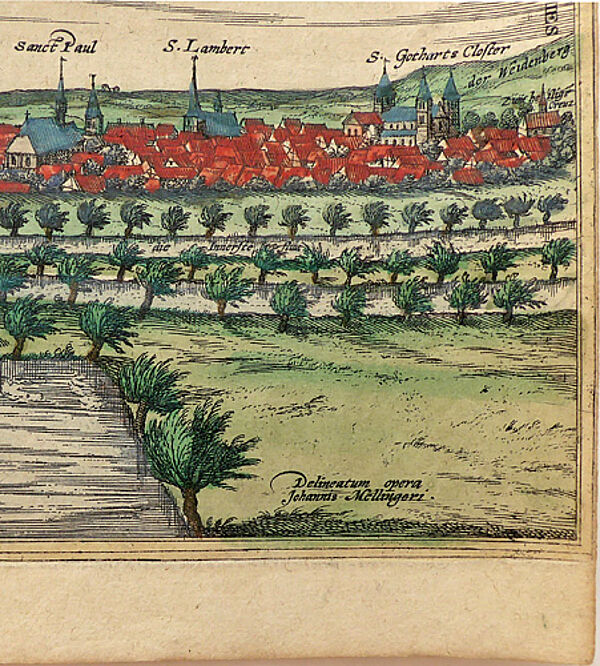 Sanct Paul
S. Lambert
S. Gotharts Closter
der Weidenberg
Zum heilige
Creuz
die Innerste
Delineatum opera
Johannis Mellingeri.